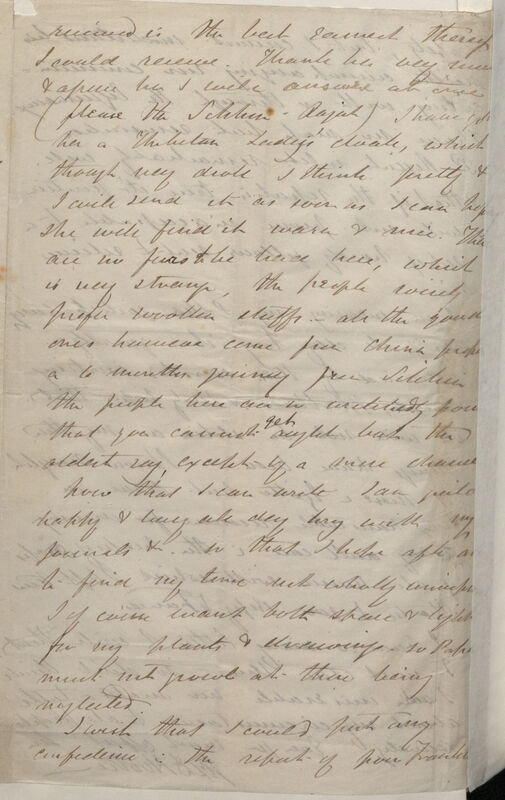 received is the best earnest thereof
I could receive. Thank her very much
& assure her I will answer at once
(please the Sikkim-Rajah) I have got
her a Thibetan Lady's cloak, which
though very droll I think pretty &
I will send it as soon as I can hope
she will find it warm & nice. There
are no furs to be had here, which
is very strange, the people wisely
prefer woollen stuffs - all the good
ones however come from China proper
a 6 months journey from Sikkim
the people here are so wretchedly poor
that you cannot get aught but the
oldest rag, except by a mere chance
Now that I can write I am quite
happy & busy all day long with my
journals &c. so that I hope after all
to find my time not wholly
I of course want both space & light
for my plants & drawings. so Papa
must not growl at there being
neglected.
I wish that I could put any
confidence in the report of poor Franklin